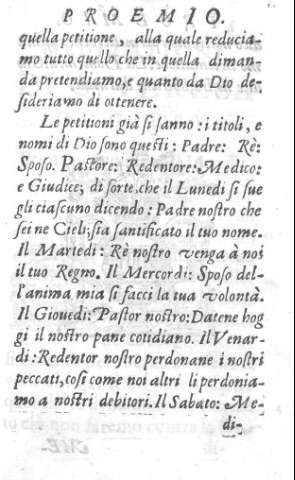 PROEMIO.
quella petitione, alla quale reducia-
mo tutto quello che in quella diman-
da pretendiamo, e quanto da Dio de-
sideriamo di ottenere.
Le petitioni già si sanno: i titoli, e
nomi di Dio sono questi: Padre: Rè:
Sposo. Pastore: Redentore: Medico:
e Giudice; di sorte, che il Lunedi si sue
gli ciascuno dicendo: Padre nostro che
sei ne Cieli; sia santificato il tuo nome.
Il Martedi: Rè nostro venga à noi
il tuo Regno. Il Mercordi: Sposo del-
l'anima mia si facci la tua volontà.
Il Giouedi: Pastor nostro: Datene hog
gi il nostro pane cotidiano. Il Venar-
di: Redentor nostro perdonane i nostri
peccati, così come noi altri li perdonia-
mo a nostri debitori. Il Sabato: Me-
di-